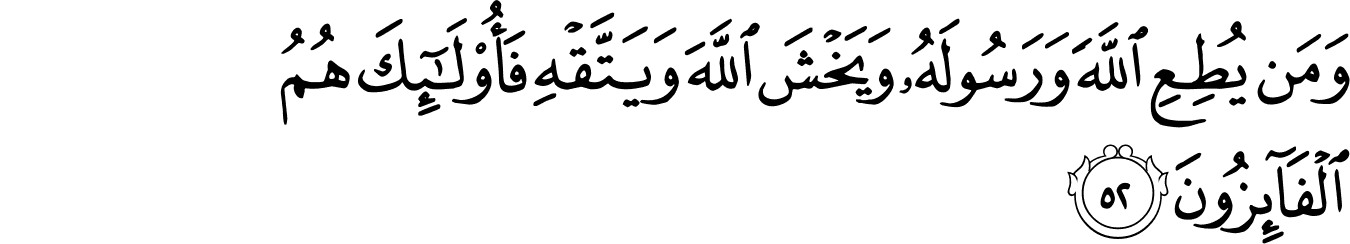 وَمَن يُطِعِ ٱللَّهَ وَرَسُولَهُۥ وَيَخۡشَ ٱللَّهَ وَيَتَّقۡهِ فَأُوْلَـٰٓئِكَ هُمُ
ٱلۡفَآئِزُونَ ٥٢